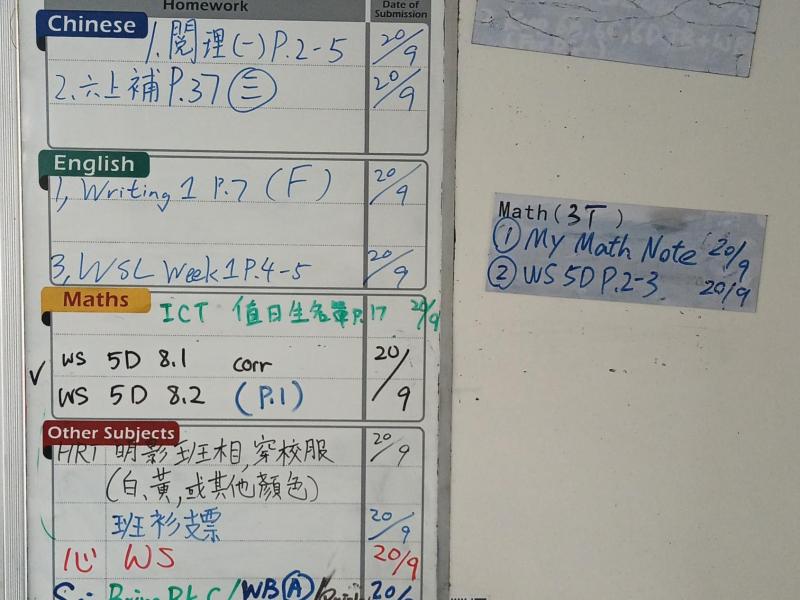 Homework Date of Submission
Chinese
1. 閱理(一) P.2-5 20/9
2. 六上補 P.37 三 20/9
English
1, Writing 1 P.7 (F) 20/9
3, WSL Week 1 P.4-5 20/9
Maths
ICT 值日生名單 P.17 20/9
✓ WS 5D 8.1 corr 20/9
WS 5D 8.2 (P.1)
Other Subjects
HRT 明影班相,穿校服 20/9
(白、黃,或其他顏色)
班衫支票 20/9
心 WS 20/9
WB A 20/9
Math(3T)
① My Math Note 20/9
② WS 5D P.2-3 20/9